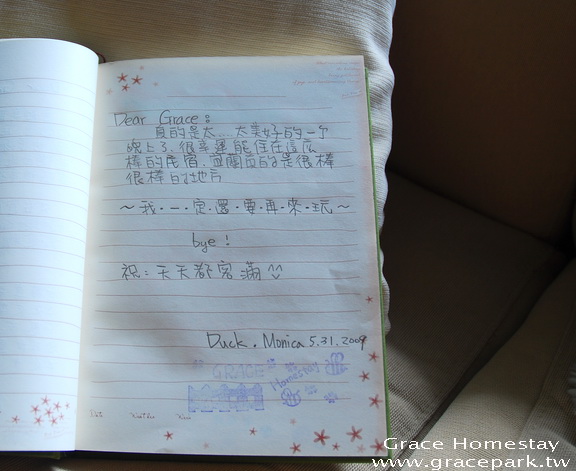 Dear Grace:
真的是太....太美好的一个
晚上了,很幸運能住在這麼
棒的民宿,宜蘭真的是很棒
很棒的地方
~我·一·定·還·要·再·來·玩~
bye!
祝:天天都客滿^^
Duck. Monica 5.31.2009
GRACE
Homestay
Grace Homestay
www.gracepark.tw